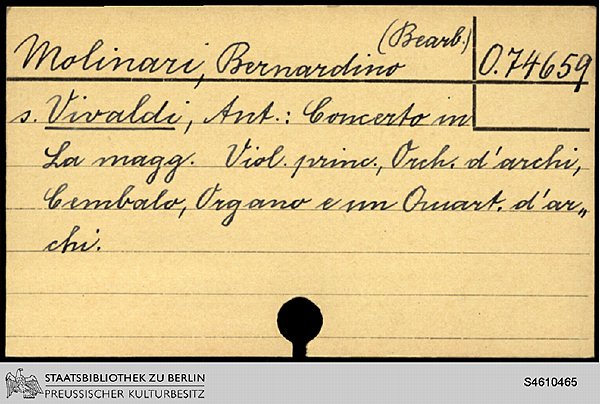 Molinari, Bernardino (Bearb.)
O.74659
s. Vivaldi, Ant.: Concerto in
La magg. Viol. princ., Orch. d'archi,
Cembalo, Organo e un Quart. d'ar„
chi.
STAATSBIBLIOTHEK ZU BERLIN
PREUSSISCHER KULTURBESITZ
S4610465